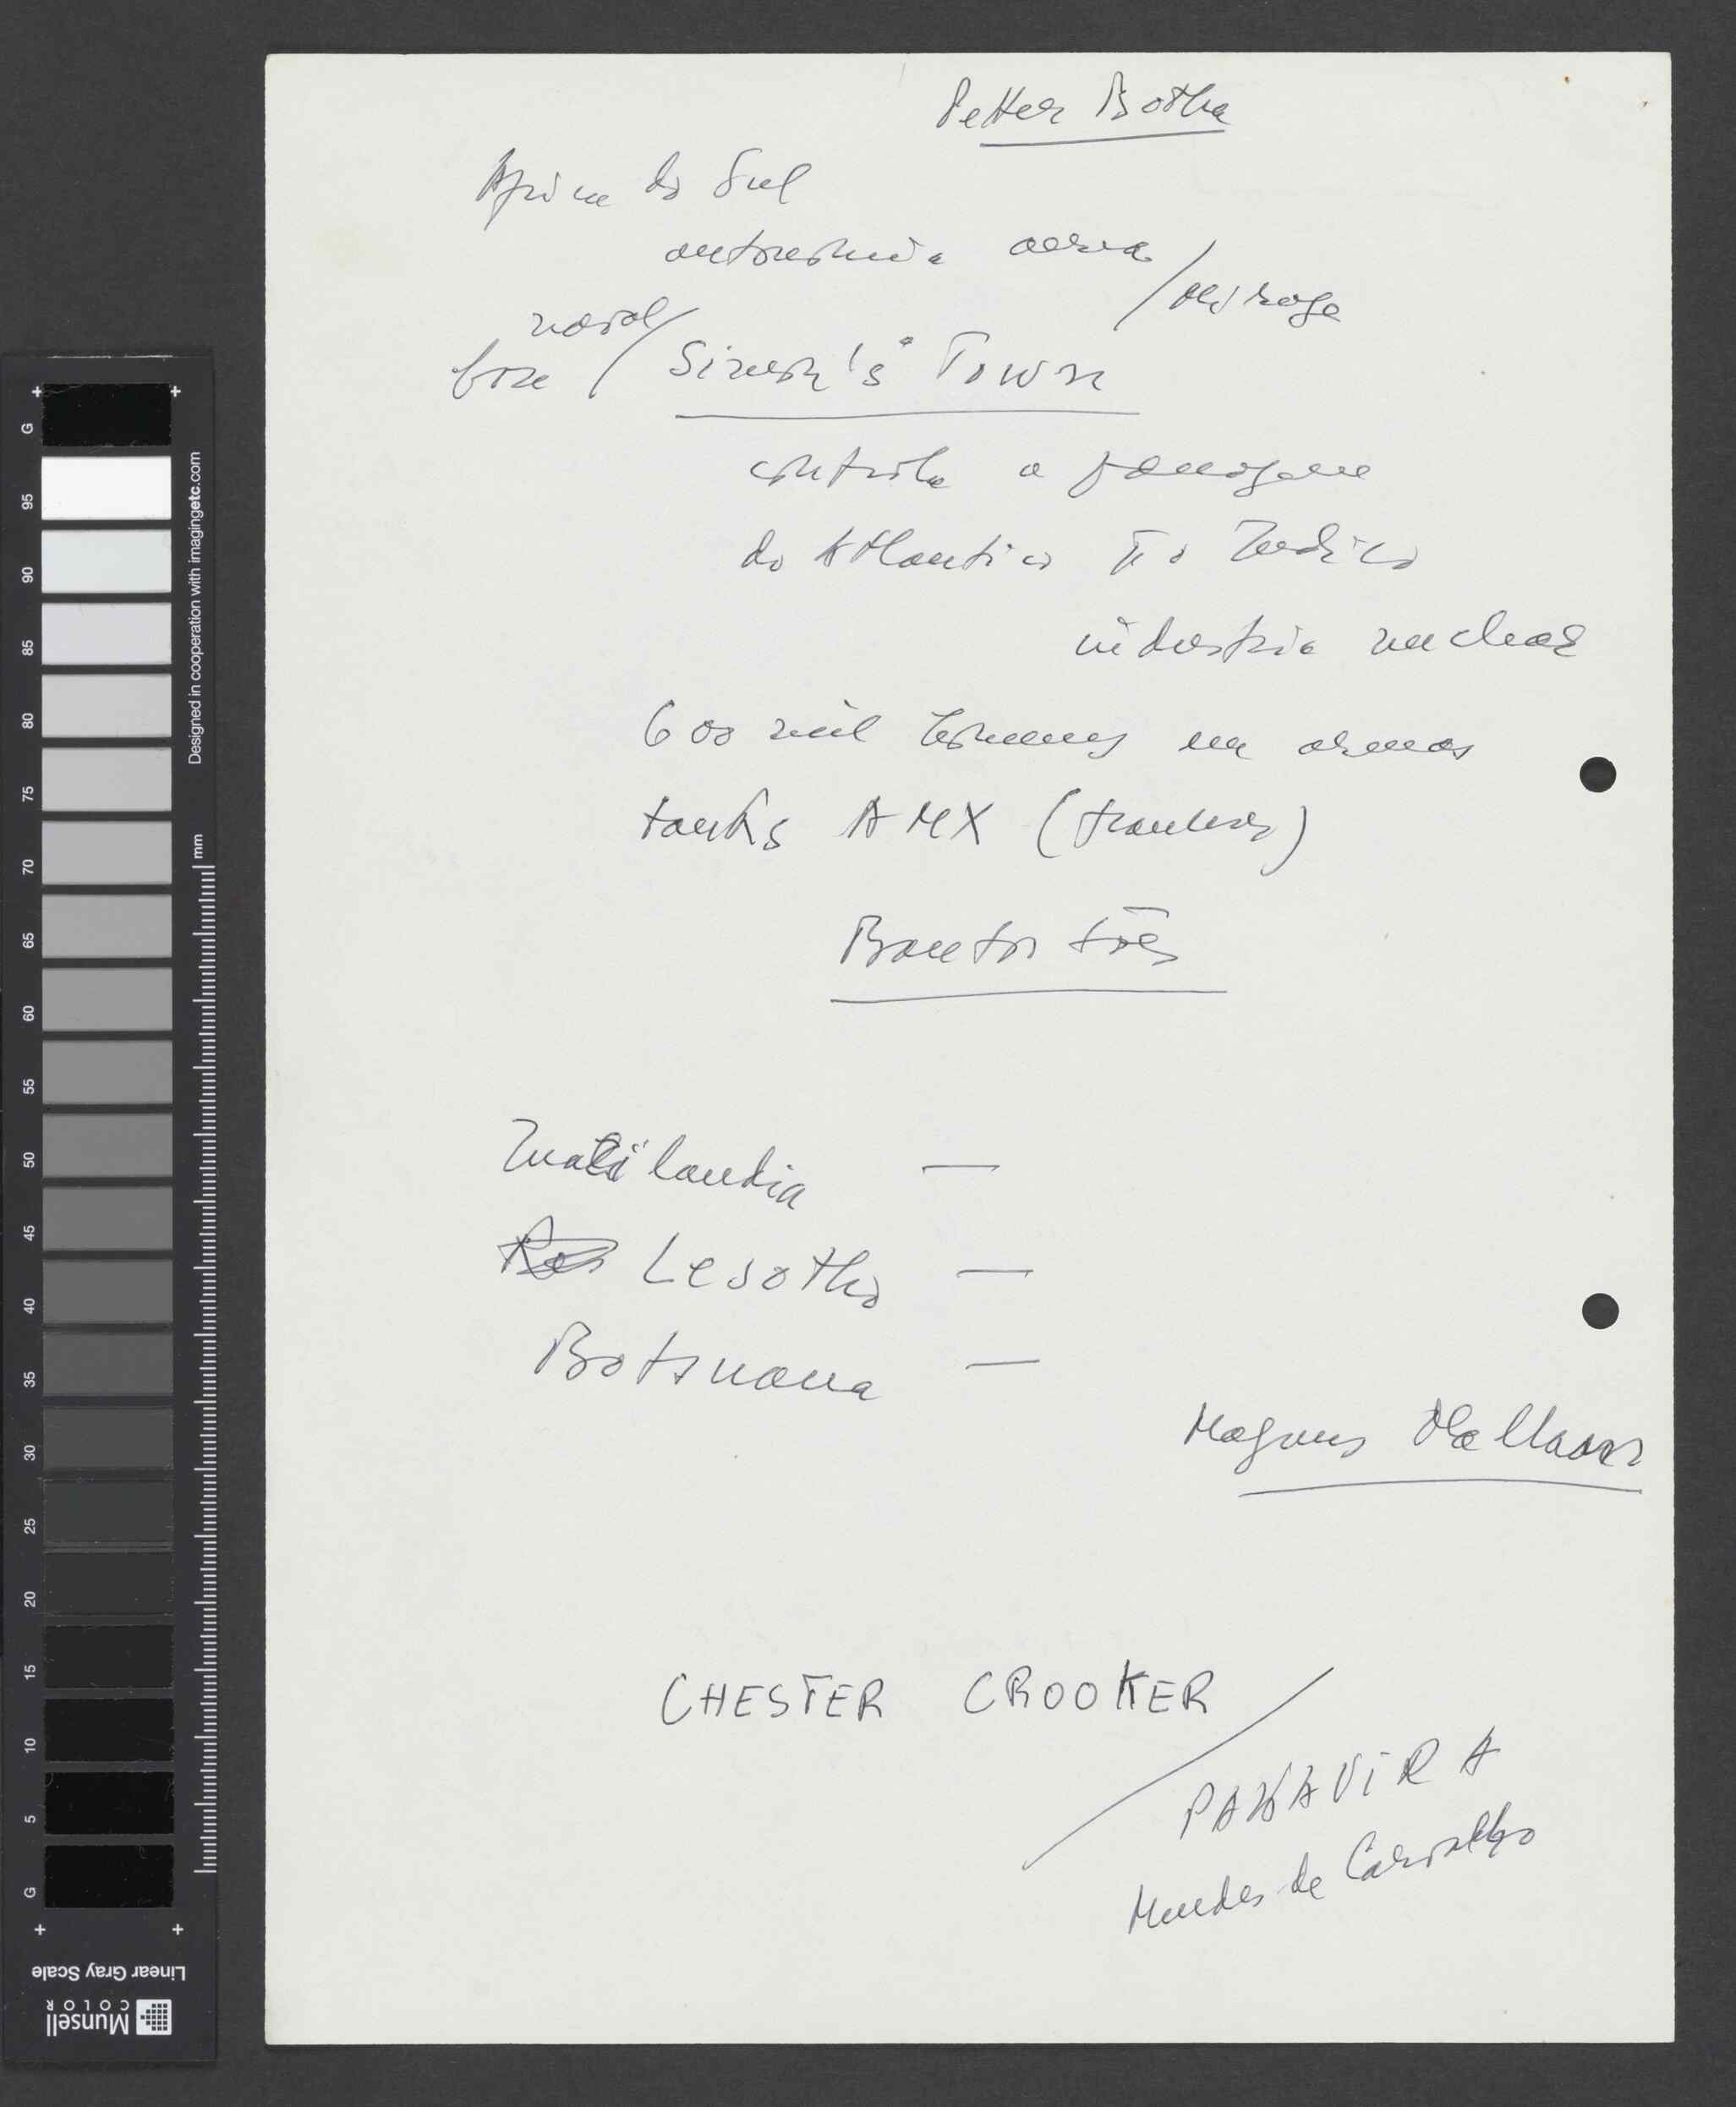 Petter Botha
Africa do Sul
autonomia aerea
/ Mirage
naval
base / Simon's Town
controla a passagem
do Atlantico p/ o Indico
industria nuclear
600 mil homens em armas
tanks AMX (franceses)
Bantustões
landia —
Lesotho —
Botsuana —
Magnus Mallaan
CHESTER CROOKER
PAKAVIRA
Mendes de Carvalho
G
95
90
85
80
75
70
65
60
55
50
45
40
35
30
25
20
15
10
5
G
Designed in cooperation with imagingetc.com
mm
Linear Gray Scale
Munsell
COLOR